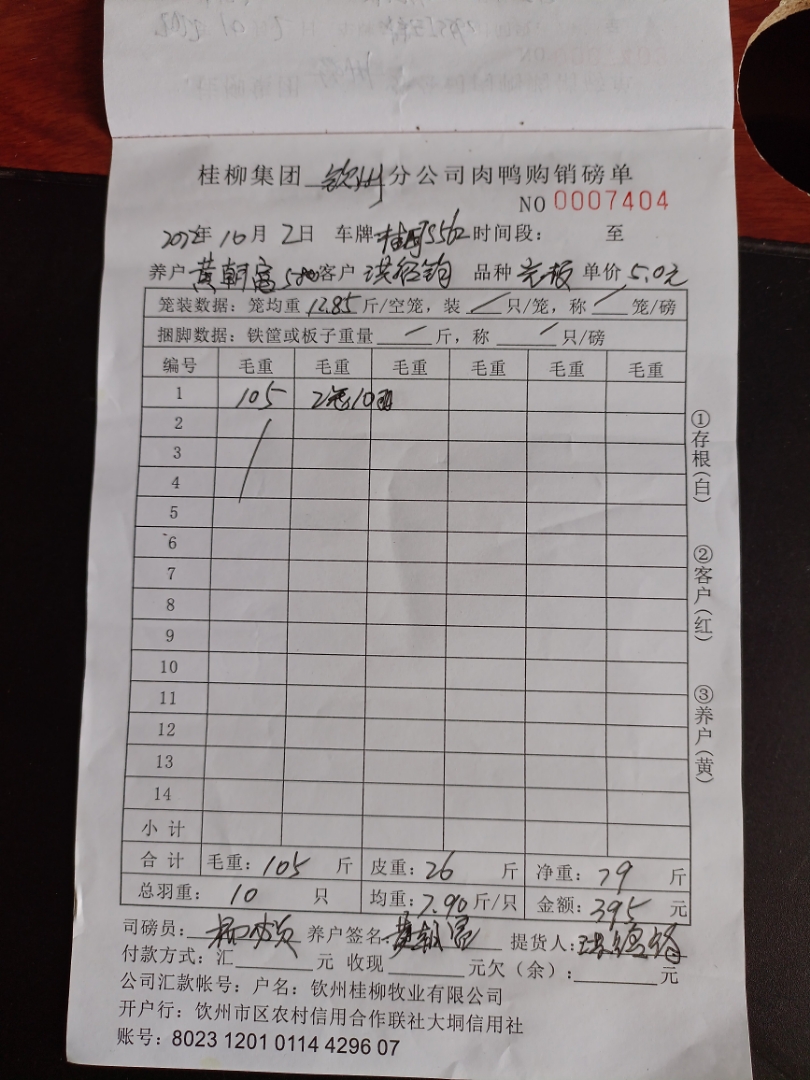 桂柳集团 钦州 分公司肉鸭购销磅单
NO 0007404
年 10月 2日 车牌 时间段： 至
养户 黄朝富 客户 品种 单价 5.0元
笼装数据：笼均重 12.85 斤/空笼，装 只/笼，称 笼/磅
捆脚数据：铁筐或板子重量 斤，称 只/磅
编号 毛重 毛重 毛重 毛重 毛重 毛重
1 105 2笼10
2
3
4
5
6
7
8
9
10
11
12
13
14
小计
合计 毛重：105 斤 皮重：26 斤 净重：79 斤
总羽重：10 只 均重：7.90斤/只 金额：395 元
司磅员： 养户签名 黄朝富 提货人：
付款方式：汇 元 收现 元欠（余）： 元
公司汇款帐号：户名：钦州桂柳牧业有限公司
开户行：钦州市区农村信用合作联社大垌信用社
账号：8023 1201 0114 4296 07
①存根(白)
②客户(红)
③养户(黄)